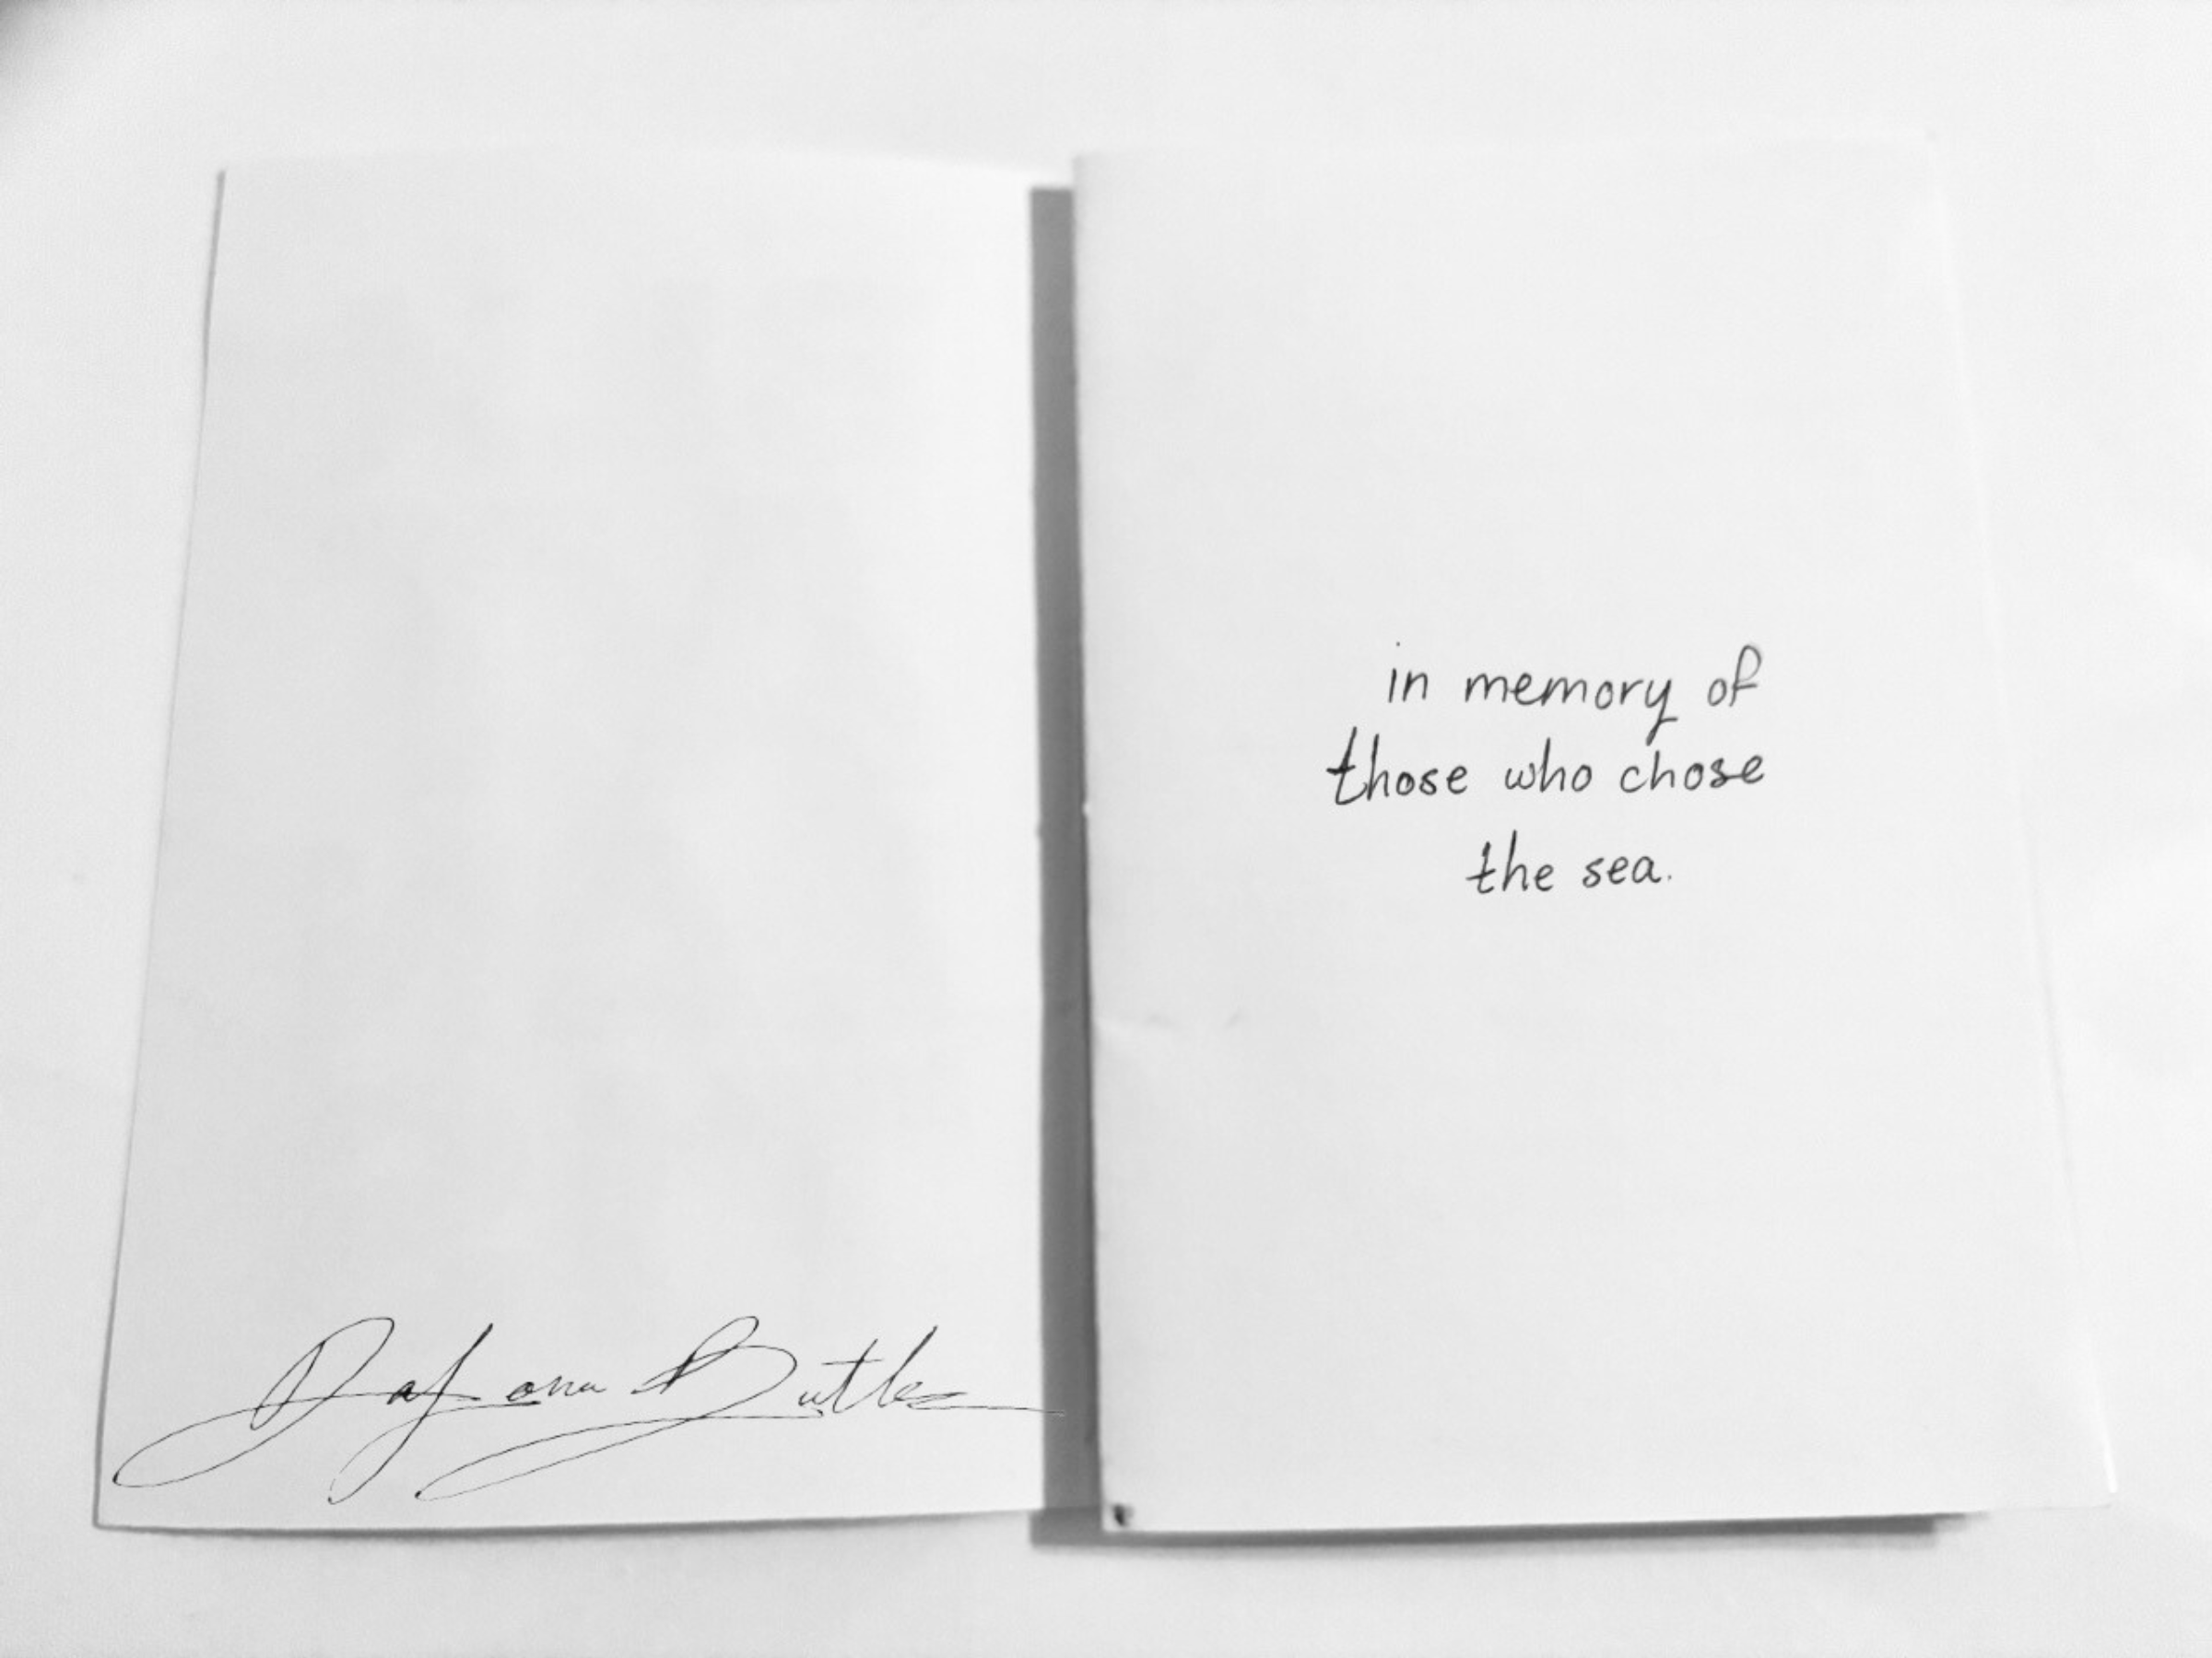 Dajana Butler
in memory of
those who chose
the sea.